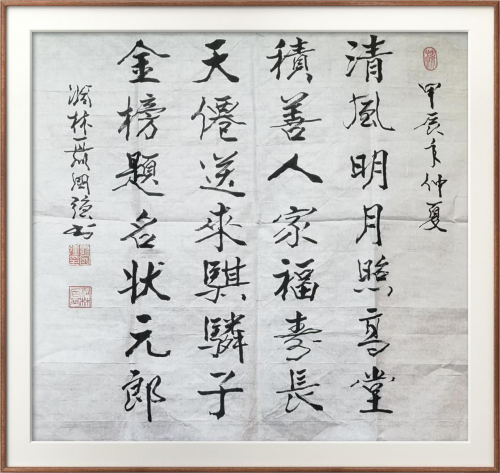 甲辰年仲夏
清風明月照高堂
積善人家福壽長
天僊送來騏驎子
金榜題名狀元郎
林國強書